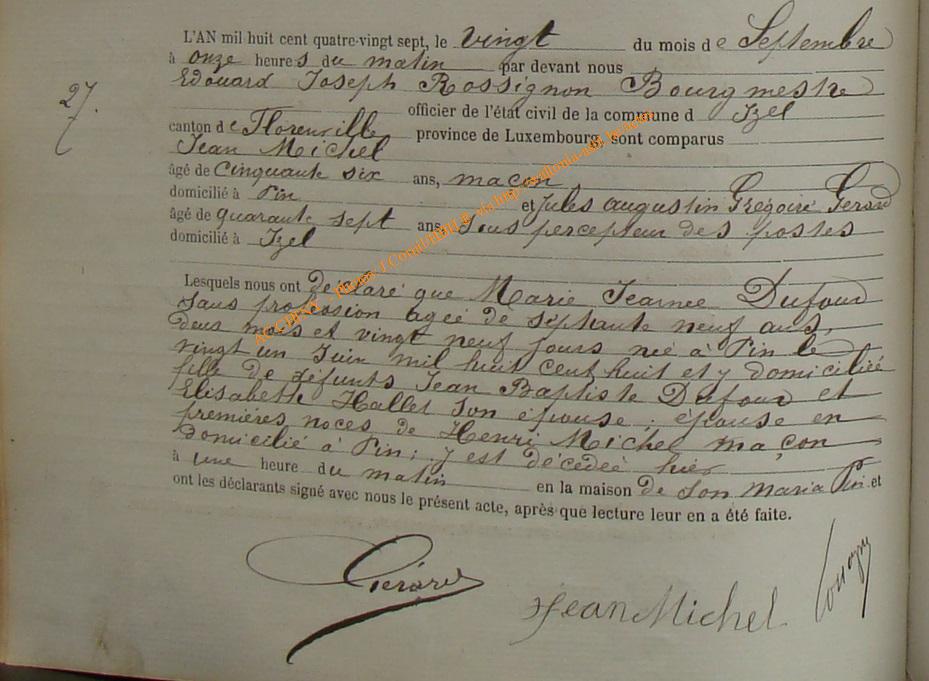 L'AN mil huit cent quatre-vingt sept, le vingt du mois de Septembre
à onze heures du matin par devant nous
Edouard Joseph Rossignon Bourgmestre
27.
officier de l'état civil de la commune d Izel
canton de Florenville province de Luxembourg, sont comparus
Jean Michel
âgé de Cinquante six ans, maçon
domicilié à Pin et Jules augustin Grégoire Gerard
âgé de quarante sept ans Sous percepteur des postes
domicilié à Izel
Lesquels nous ont déclaré que Marie Jeanne Dufour
sans profession agée de septante neuf ans,
deux mois et vingt neuf jours née à Pin le
vingt un Juin mil huit cent huit et y domiciliée
fille de défunts Jean Baptiste Dufour et
Elisabeth Hallet son épouse ; épouse en
premières noces de Henri Michel maçon
domicilié à Pin ; y est décédée hier
à une heure du matin en la maison de son maria Pin et
ont les déclarants signé avec nous le présent acte, après que lecture leur en a été faite.
Gérard
Jean Michel